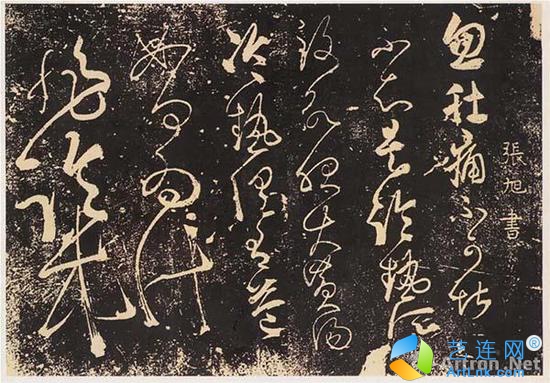 張旭書
忽肚痛不可堪
不知是冷熱所
致欲服大黃湯
冷熱俱有益
如何為計
非臨床
艺连网®
Artron.Net